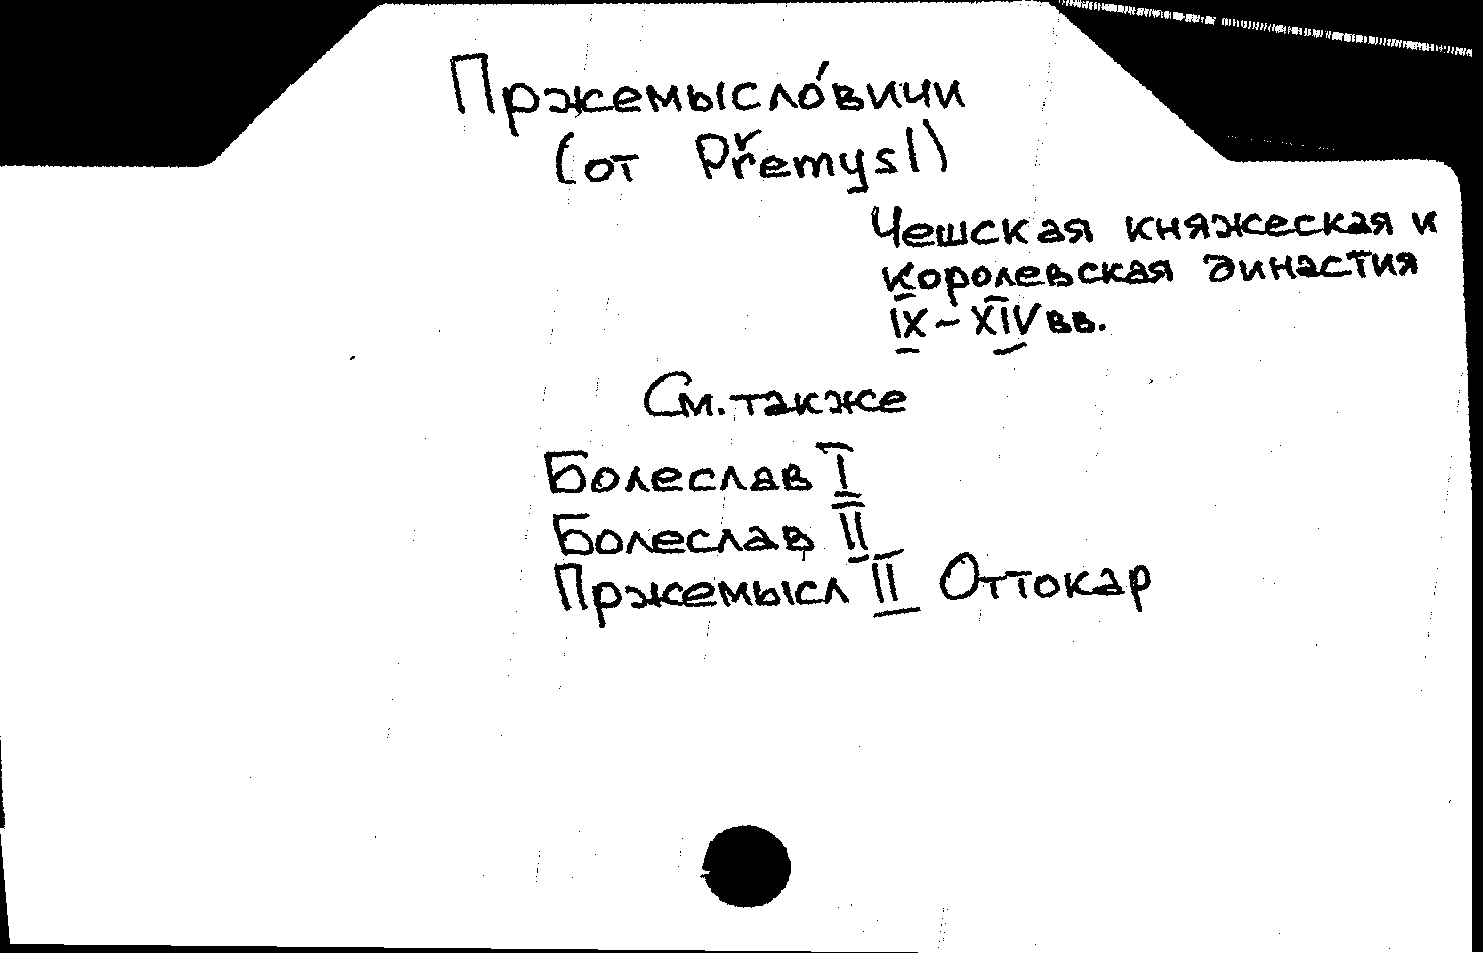 Пржемысло́вичи
(от Přemysl)
Чешская княжеская и
королевская династия
IX – XIV вв.
См. также
Болеслав I
Болеслав II
Пржемысл II Оттокар